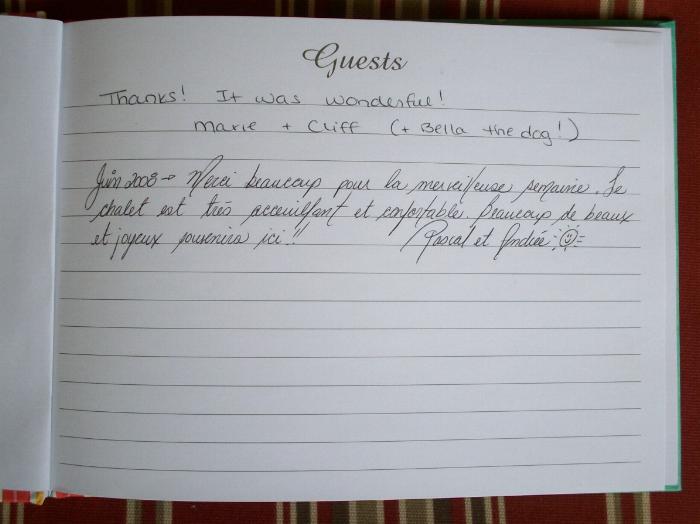 Guests
Thanks! It was wonderful!
Marie + Cliff (+ Bella the dog!)
Juin 2008 → Merci beaucoup pour la merveilleuse semaine. Le
chalet est très acceuillant et confortable. Beaucoup de beaux
et joyeux souvenirs ici!!
Pascal et Andrée